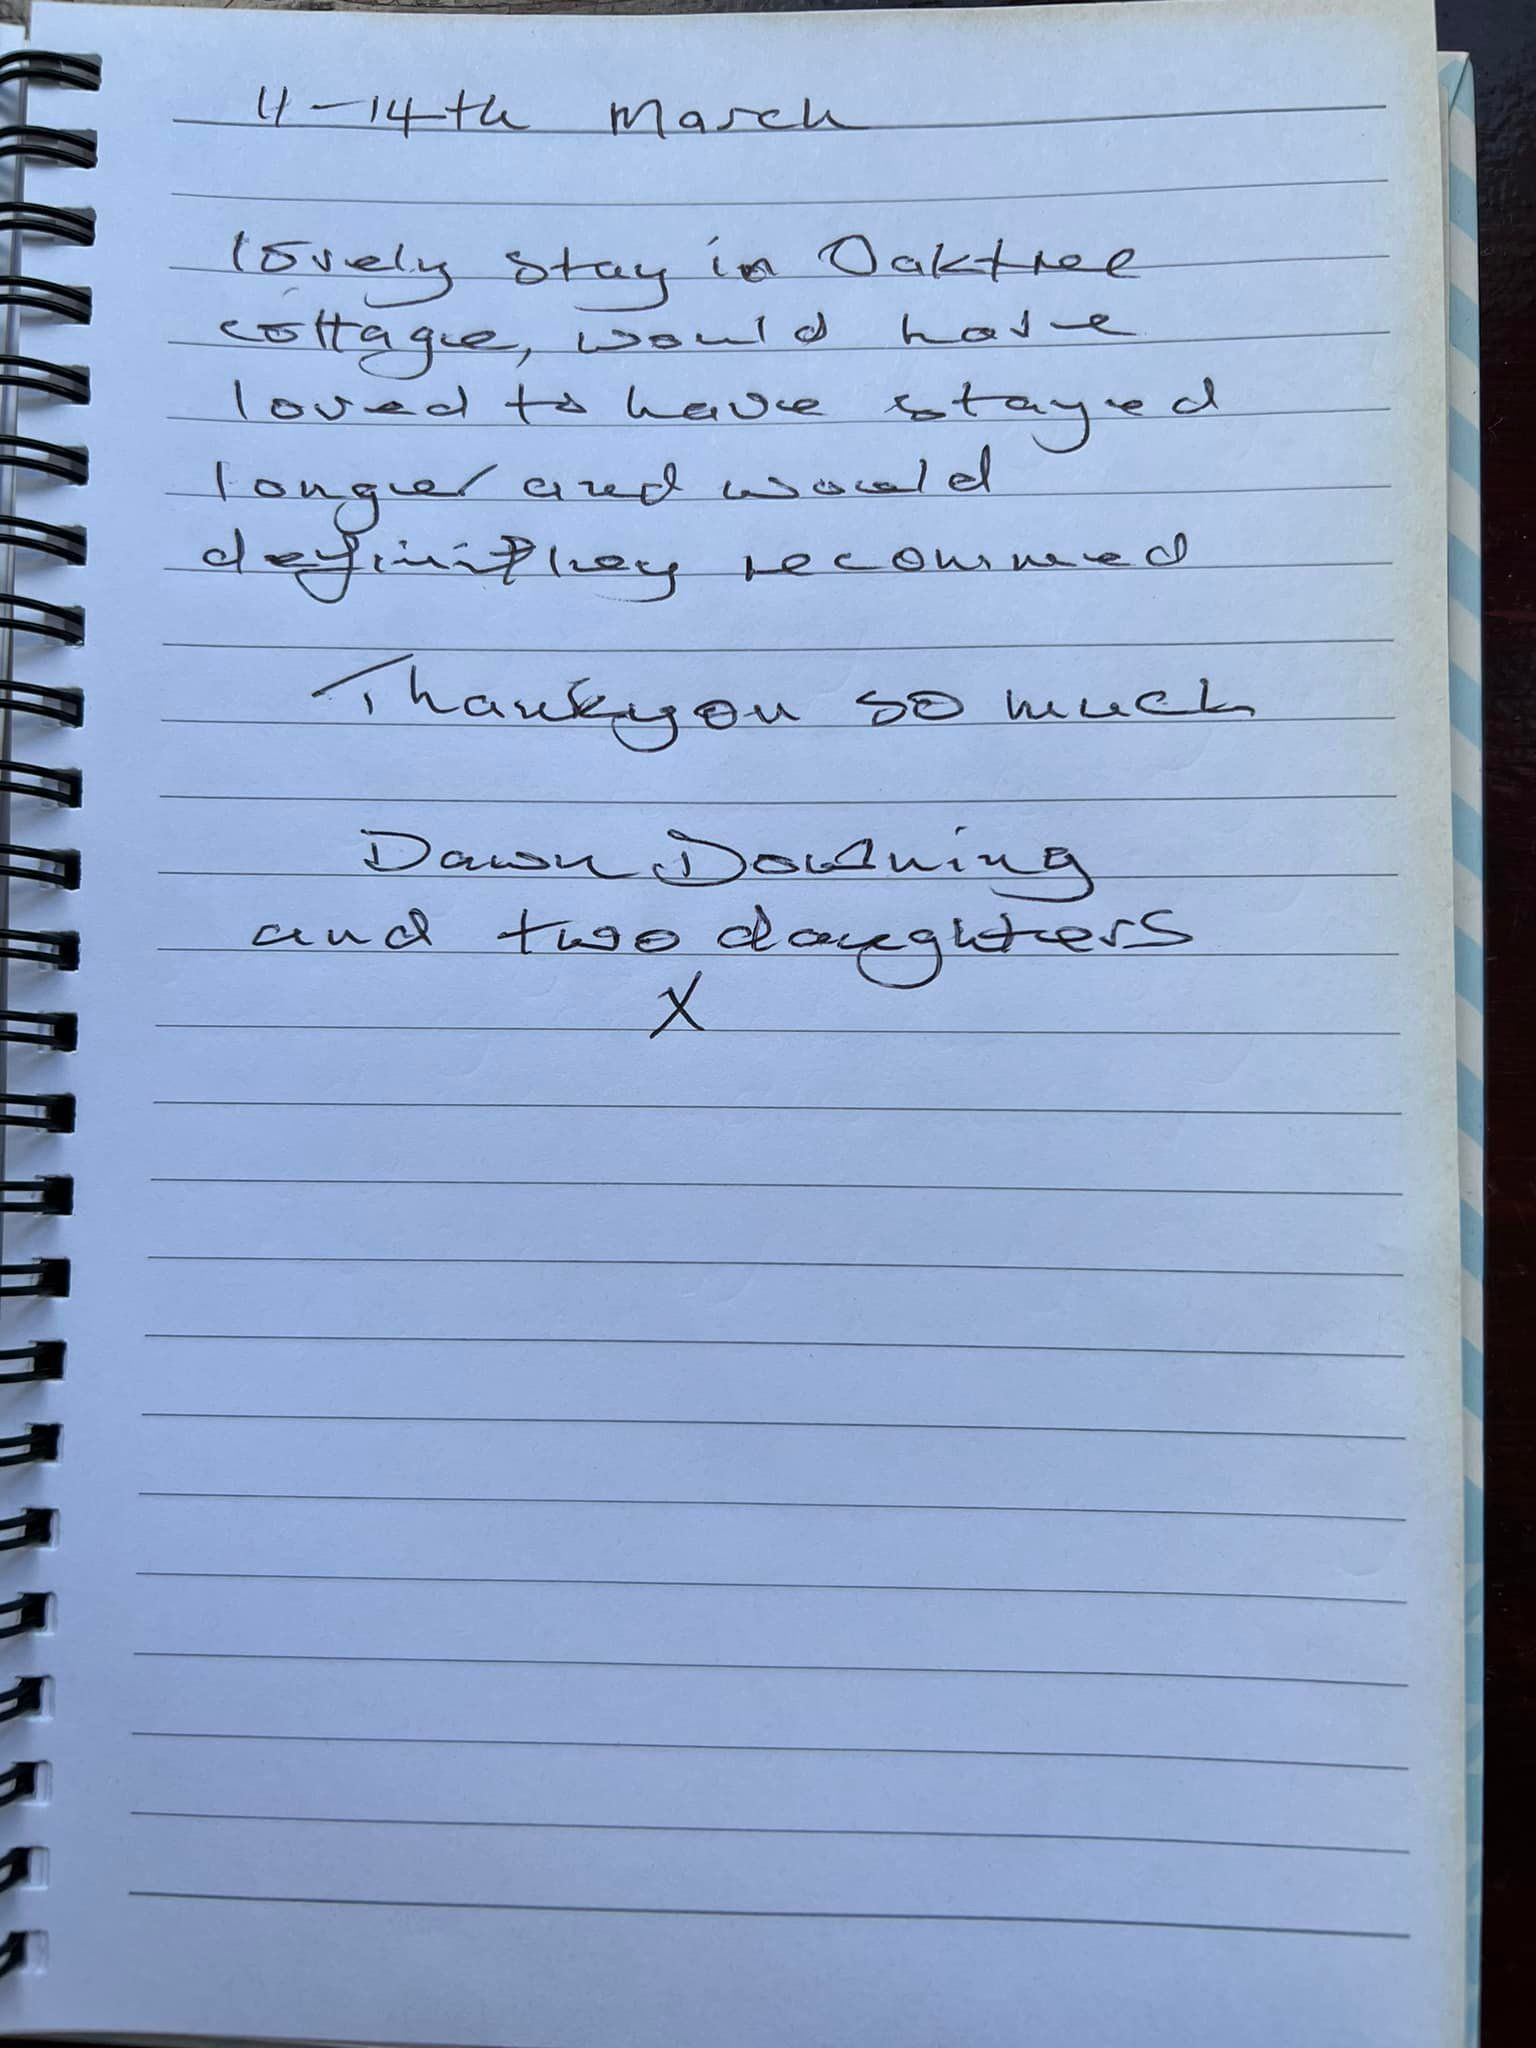 11-14th March
lovely stay in Oaktree
cottage, would have
loved to have stayed
longer and would
definitley recommed
Thankyou so much
Dawn Downing
and two daughters
X